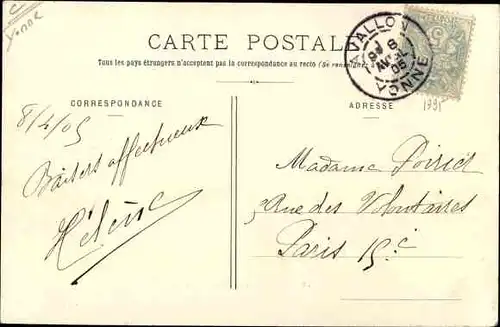 Yonne
CARTE POSTALE
Tous les pays étrangers n'acceptent pas la correspondance au recto (Se renseigner à
CORRESPONDANCE
ADRESSE
AVALLON
8
AVRIL
05
YONNE
8/4/05
Baisers affectueux
Hélène
Madame Poiriet
Rue des Volontaires
Paris 15e